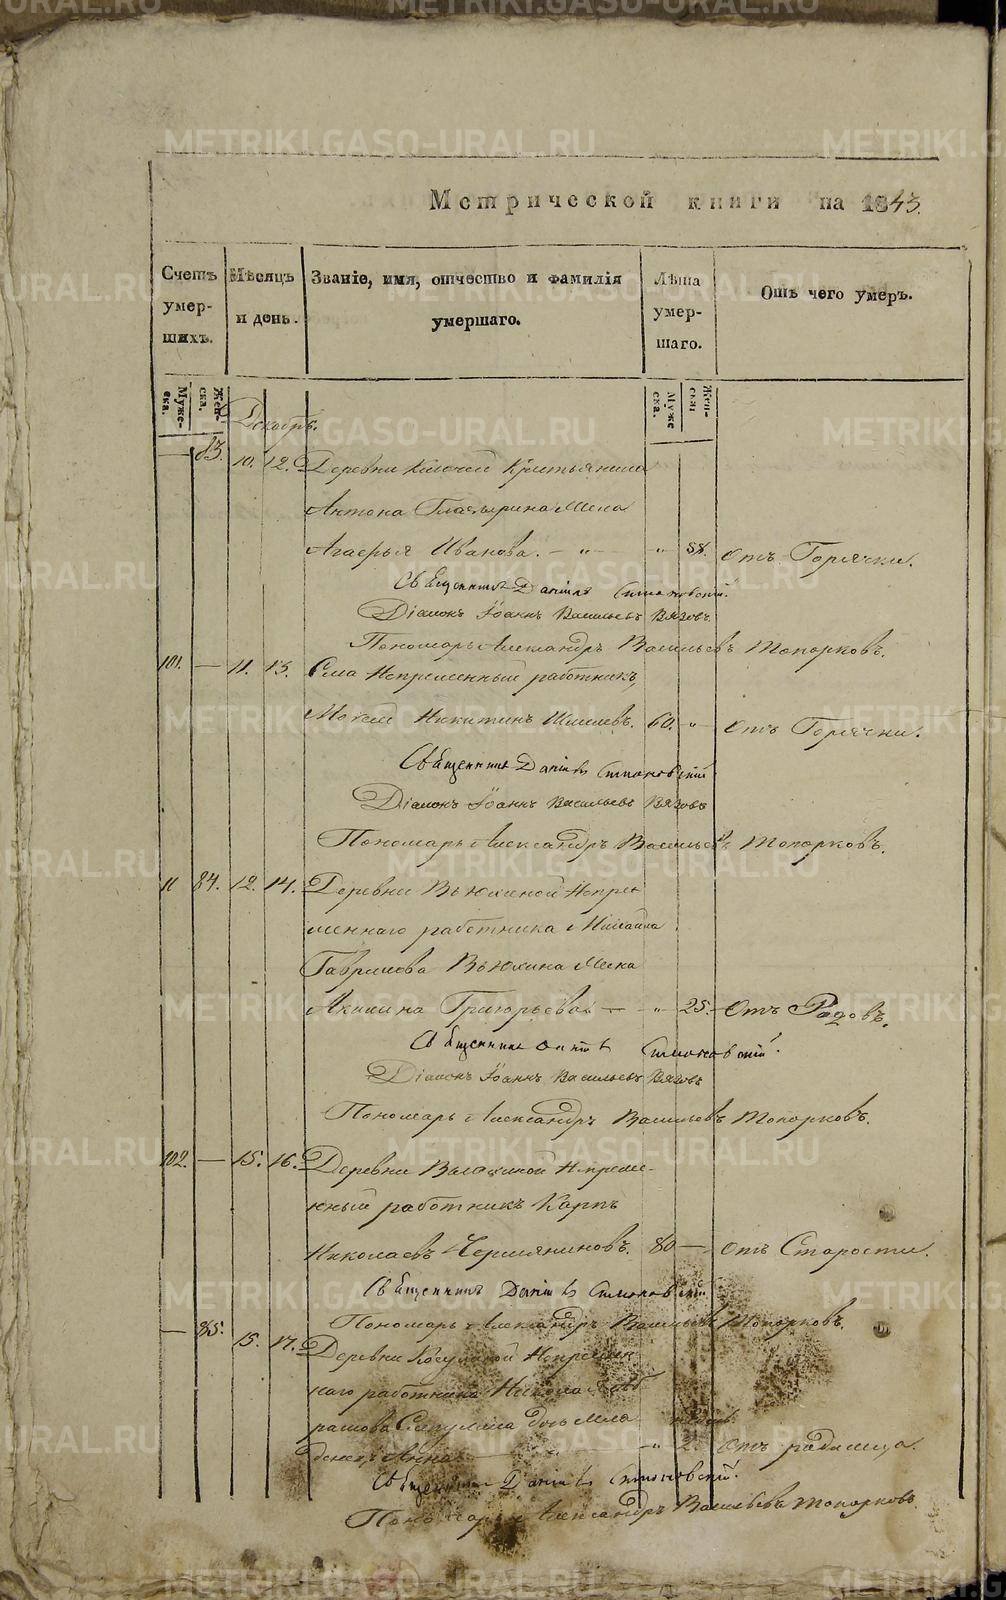 METRIKI.GASO-URAL.RU
Метрической книги на 1843.
Счетъ умер-шихъ.
Мѣсяцъ и день.
Званіе, имя, отчество и фамилія умершаго.
Лѣта умер-шаго.
Отъ чего умеръ.
Муже-ска. Жен-ска. Муже ска. Жен-ска
Декабрь.
— 83. 10. 12. Деревни Ключей Крестьянина
Антона Глазырина Жена
Агафья Иванова. — „ — „ 58. отъ Горячки.
Священникъ Даніилъ
Діаконъ Іоаннъ Васильевъ Вязовъ.
Пономарь Александръ Васильевъ Топорковъ.
101. — 11. 13. Села Непременный работникъ,
Мокей Никитинъ 60. „ отъ Горячки.
Священникъ Даніилъ
Діаконъ Іоаннъ Васильевъ Вязовъ
Пономарь Александръ Васильевъ Топорковъ.
„ 84. 12. 14. Деревни Вьюхиной Непре
меннаго работника Михаила
Гаврилова Вьюхина Жена
Акилина Григорьева — „ 25. отъ Родовъ.
Священникъ
Діаконъ Іоаннъ Васильевъ Вязовъ
Пономарь Александръ Васильевъ Топорковъ.
102. — 15. 16. Деревни Непреме-
нный работникъ Карпъ
Николаевъ Чермяниновъ. 80 — отъ Старости.
Священникъ Даніилъ
Пономарь Александръ Васильевъ Топорковъ.
— 85. 15. 17. Деревни Косулиной Непремен
наго работника Николая Аб
рамова дочь Мла
денецъ Анна — „ 2 отъ родимца.
Священникъ Даніилъ
Пономарь Александръ Васильевъ Топорковъ